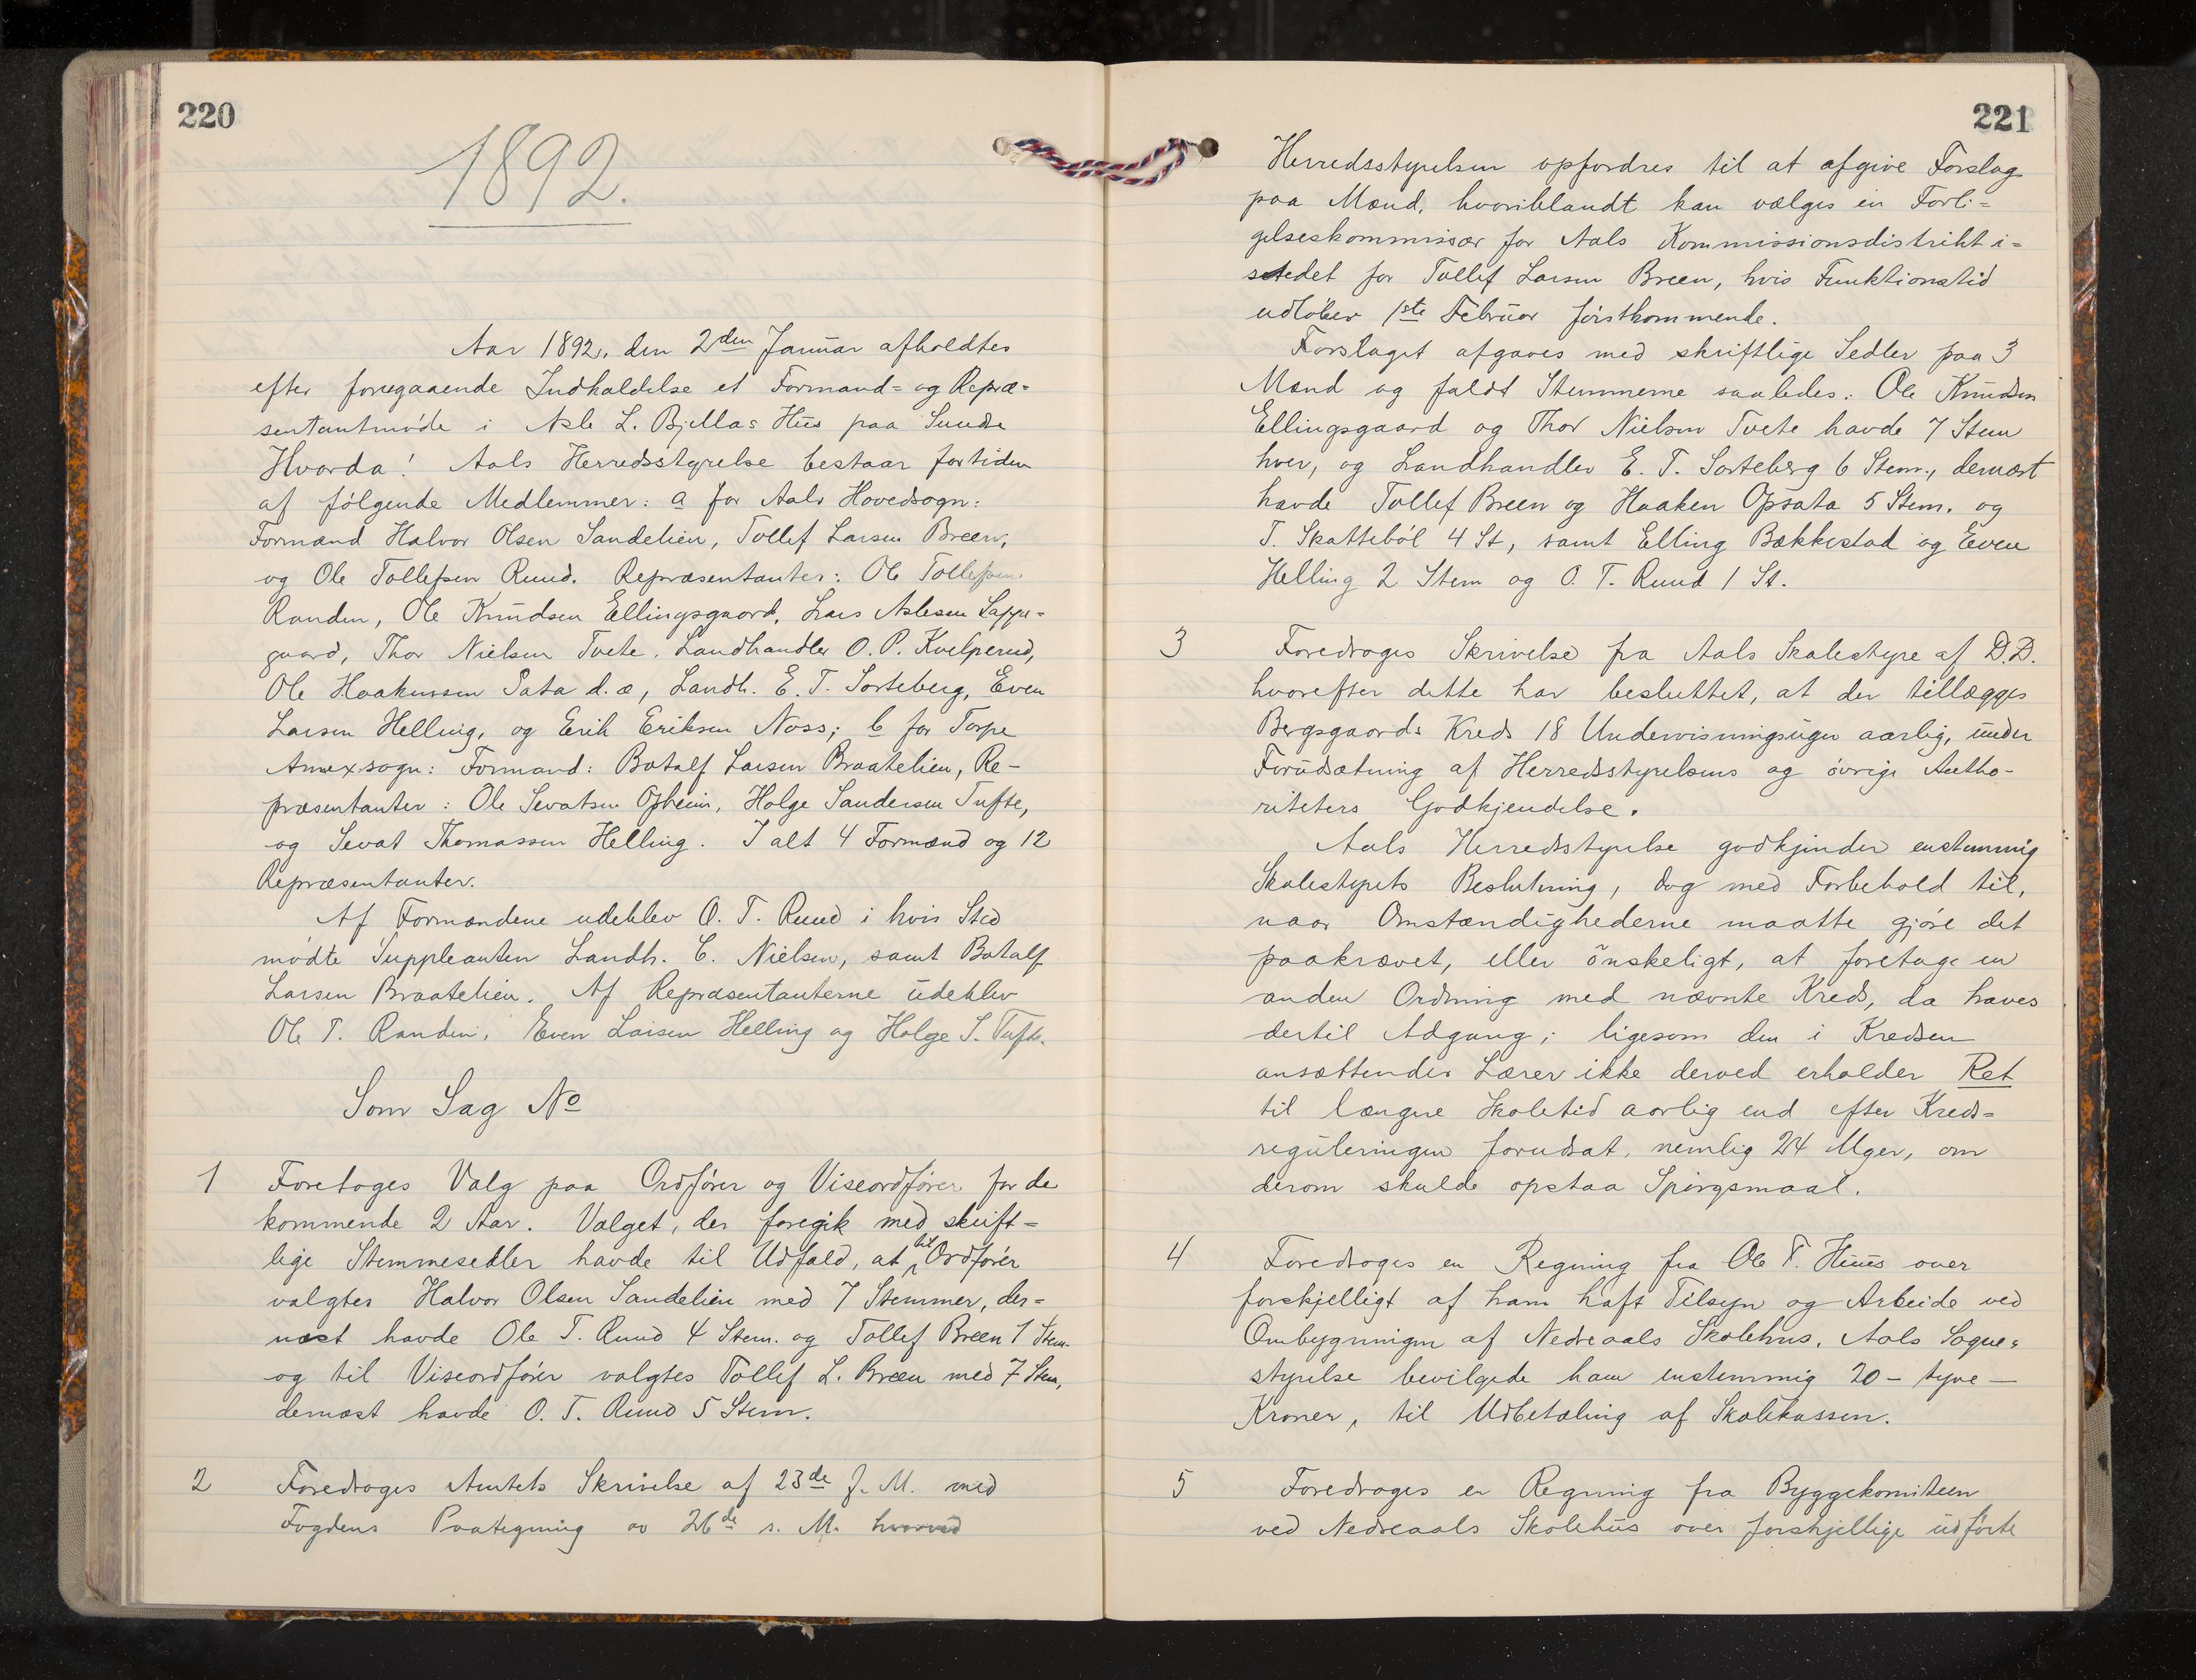 220
1892.
Aar 1892, den 2den Januar afholdtes
efter foregaaende Indkaldelse et Formand= og Repræ=
sentantmöde i Asle L. Bjellas Hus paa Sundre
Hvorda! Aals Herredsstyrelse bestaar fortiden
af følgende Medlemmer: a for Aals Hovedsogn:
Formænd Halvor Olsen Sandelien, Tollef Larsen Breen,
og Ole Tollefsen Ruud. Repræsentanter: Ole Tollefsen
Randen, Ole Knudsen Ellingsgaard, Lars Aslesen Lappe=
gaard, Thor Nielsen Tvete, Landhandler O. P. Kvelprud,
Ole Haakensen Sata d. æ, Landh. E. T. Sorteberg, Even
Larsen Helling, og Erik Eriksen Noss; b for Torpe
Annexsogn: Formand: Botolf Larsen Braatelien, Re-
præsentanter: Ole Sevatsen Opheim, Holge Sandersen Tufte,
og Sevat Thomassen Helling. I alt 4 Formænd og 12
Repræsentanter.
Af Formændene udeblev O. T. Ruud i hvis Sted
mödte Suppleanten Landh. C. Nielsen, samt Botolf
Larsen Braatelien. Af Repræsentanterne udeblev
Ole T. Randen, Even Larsen Helling og Holge S. Tufte.
Som Sag No
1 Foretoges Valg paa Ordförer og Viseordförer for de
kommende 2 Aar. Valget, der foregik med skrift=
lige Stemmesedler havde til Udfald, at til Ordförer
valgtes Halvor Olsen Sandelien med 7 Stemmer, der=
næst havde Ole T. Ruud 4 Stem. og Tollef Breen 1 Stem.
og til Viseordförer valgtes Tollef L. Breen med 7 Stem,
dernæst havde O. T. Ruud 5 Stem.
2 Foredroges Amtets Skrivelse af 23de f. M. med
Fogdens Paategning av 26de s. M. hvorved
221
Herredsstyrelsen opfordres til at afgive Forslag
paa Mænd, hvoriblandt kan vælges en Forli=
gelseskommissær for Aals Kommissionsdistrikt i=
stedet for Tollef Larsen Breen, hvis Funktionstid
udlöber 1ste Februar förstkommende.
Forslaget afgaves med skriftlige Sedler paa 3
Mænd og faldt Stemmerne saaledes: Ole Knudsen
Ellingsgaard og Thor Nielsen Tvete havde 7 Stem
hver, og Landhandler E. T. Sorteberg 6 Stem., dernæst
havde Tollef Breen og Haaken Opsata 5 Stem. og
T. Skatteböl 4 St, samt Elling Bækkestad og Even
Helling 2 Stem og O. T. Ruud 1 St.
3 Foredroges Skrivelse fra Aals Skolestyre af D.D.
hvorefter dette har besluttet, at der tillægges
Bergsgaards Kreds 18 Undervisningsuger aarlig, under
Forudsætning af Herredsstyrelsens og övrige Autho-
riteters Godkjendelse.
Aals Herredsstyrelse godkjender enstemmig
Skolestyrets Beslutning, dog med Forbehold til,
naar Omstændighederne maatte gjöre det
paakrævet, eller önskeligt, at foretage en
anden Ordning med nævnte Kreds, da haves
dertil Adgang; ligesom den i Kredsen
ansættendes Lærer ikke derved erholder Ret
til længre Skoletid aarlig end efter Kreds=
reguleringen forudsat, nemlig 24 Uger, om
derom skulde opstaa Spörgsmaal.
4 Foredroges en Regning fra Ole T. Huus over
forskjelligt af ham haft Tilsyn og Arbeide ved
Ombygningen af Nedreaals Skolehus. Aals Sogne=
styrelse bevilgede ham enstemmig 20 - tyve -
Kroner, til Udbetaling af Skolekassen.
5 Foredroges en Regning fra Byggekomiteen
ved Nedreaals Skolehus over forskjellige udförte